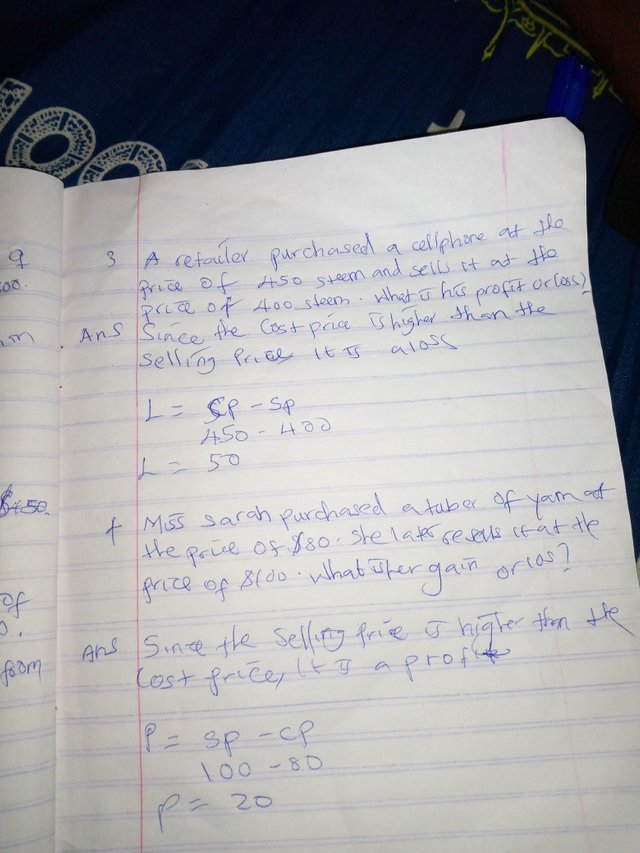 9
00.
$450.
of
0.
from
3 A retailer purchased a cellphone at the
price of 450 steem and sells it at the
price of 400 steem. What is his profit or loss?
Ans Since the Cost price is higher than the
selling Price it is a loss
L = CP - SP
450 - 400
L = 50
4 Miss Sarah purchased a tuber of yam at
the price of $80. She later resells it at the
price of $100. What is her gain or los?
Ans Since the selling price is higher than the
Cost price, it is a profit
P = SP - CP
100 - 80
P = 20